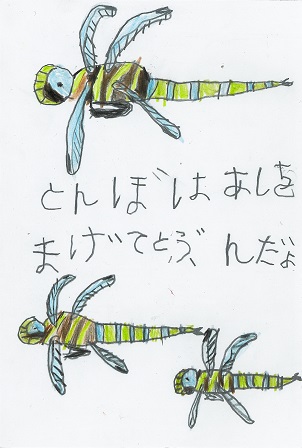 とんぼは あしを
まげてとぶ んだよ